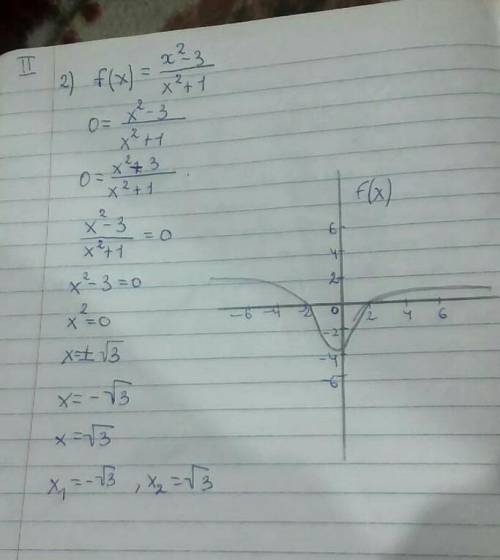 II
2) f(x) = x²-3 / x²+1
0 = x²-3 / x²+1
0 = x²+3 / x²+1 .
x²-3 / x²+1 = 0
x²-3=0
x²=0
x=±√3
x=-√3
x=√3
x₁=-√3 , x₂=√3
f(x)
6
4
2
-6 -4 -2 0 2 4 6
-2
-4
-6